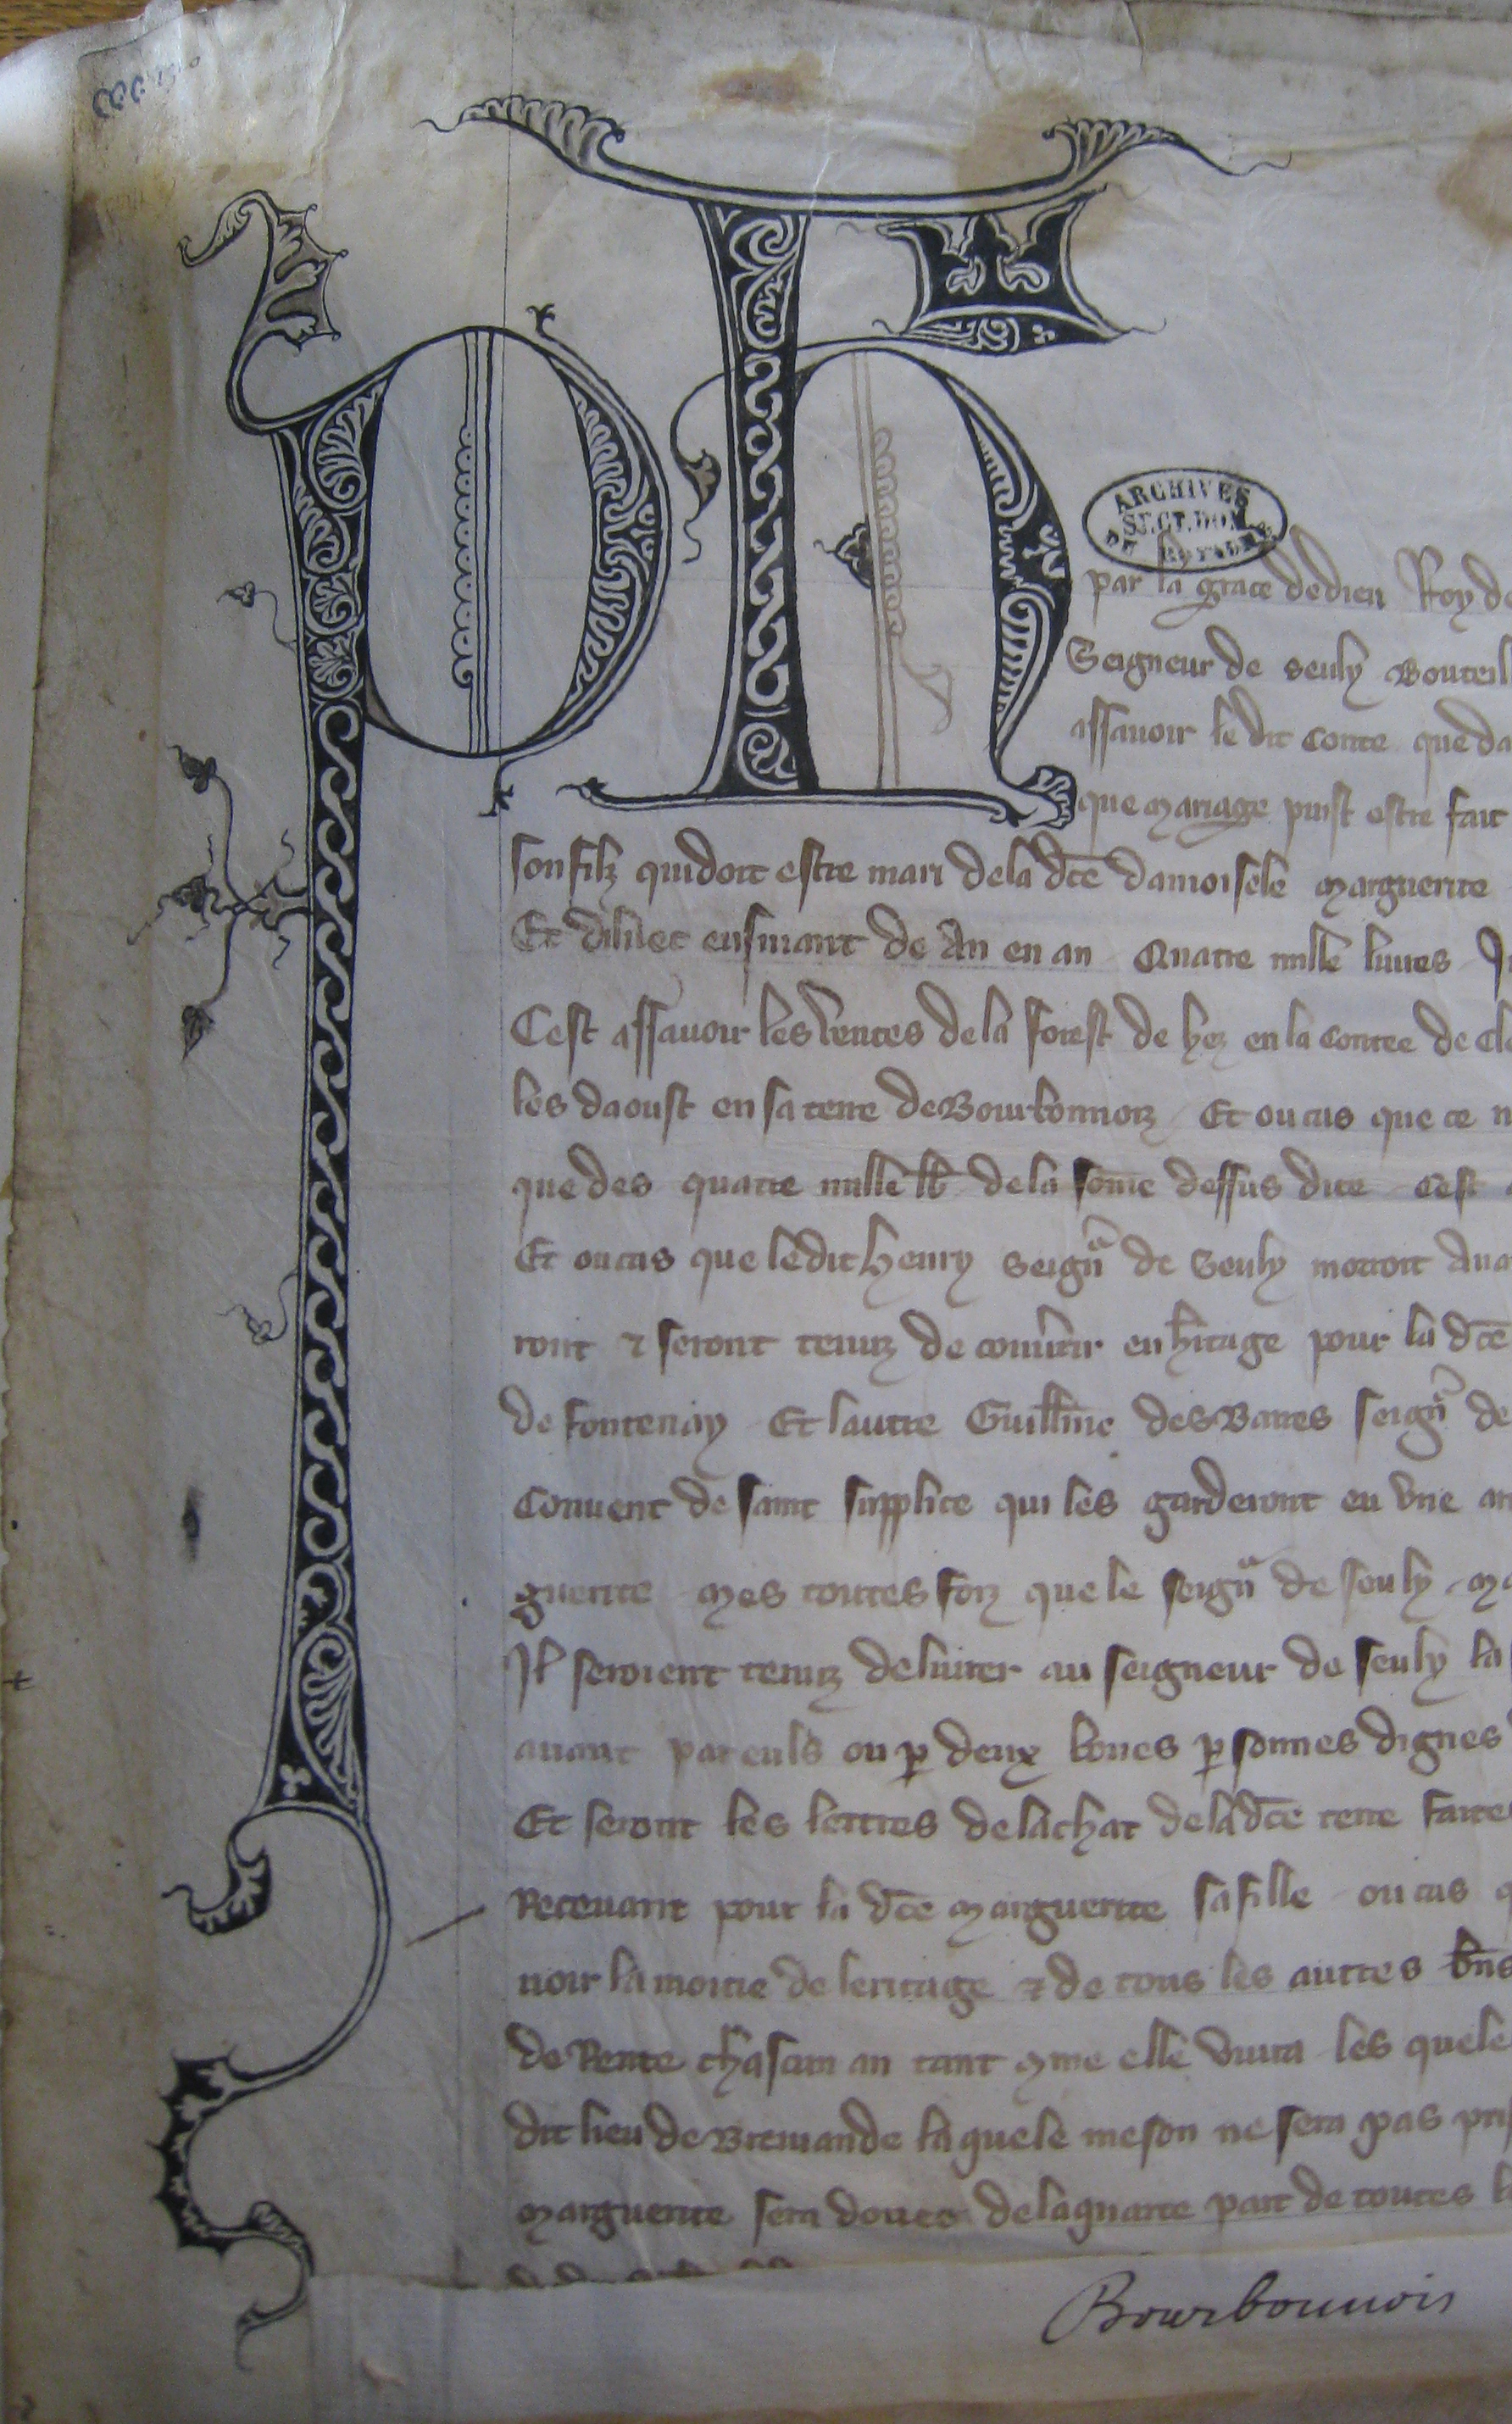 PH
ARCHIVES
SECT. DOM.
DU ROYAUME
par la grace dedieu Roy de
Seigneur de seuly Bouteill
assauoir le dit Conte que da
que mariage puist estre fait
son filz quidoit estre mari dela dce damoisele marguerite
Et diluec ensuiuant de An en an Quatre mille liures
Cest assauoir les ventes dela forest de hez en la Contee de Cle
les daoust en sa terre de Bourbonnoiz Et ou cas que ce n
que des quatre mille lb dela some dessus dite Cest a
Et ou cas que ledit henry seign de seuly moroit Aua
ront & seront tenuz de conuertir en hitage pour la dce
de fontenay Et lautre Guillme des Barres seign de
Conuent de saint supplice qui les garderont en vne ar
guerite mes toutes foiz que le seign de seuly ma
Il seroient tenuz deliurer au seigneur de seuly la
auant par euls ou p deux bones p sonnes dignes
Et seront les lettres de lachat dela dce terre faites
Receuant pour la dce marguerite sa fille ou cas q
uoir la moitie de leritage & de tous les autres bns
de Rente chascun an tant 9me elle viura les quele
dit lieu de la quele meson ne sera pas pris
marguerite sera douee dela quarte part de toutes l
Bourbonnois